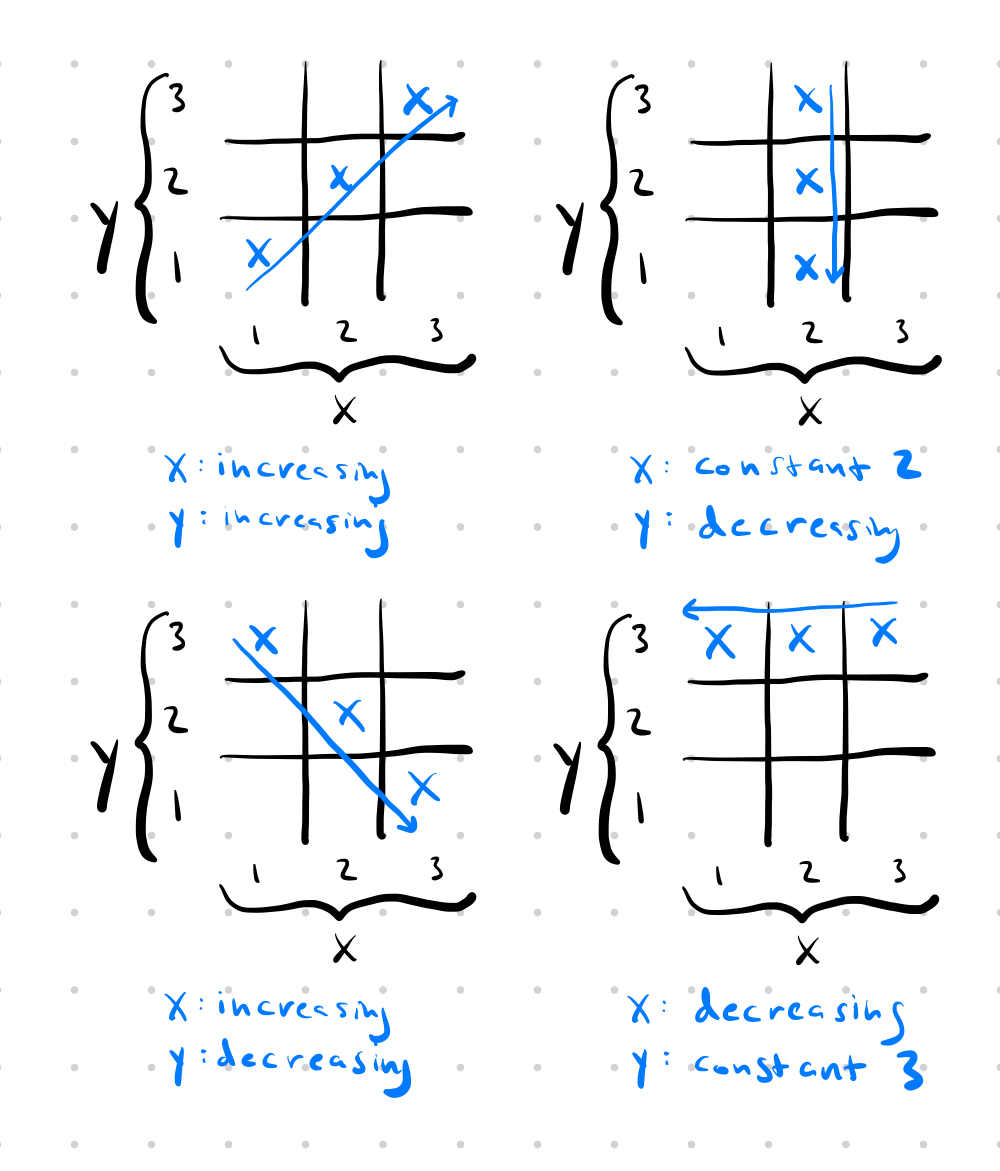 3
X
2
X
Y
X
1
1 2 3
X
X: increasing
Y: increasing
3
X
2
X
Y
X
1
1 2 3
X
X: constant 2
Y: decreasing
3
X
2
X
Y
X
1
1 2 3
X
X: increasing
Y: decreasing
3
X X X
2
Y
1
1 2 3
X
X: decreasing
Y: constant 3